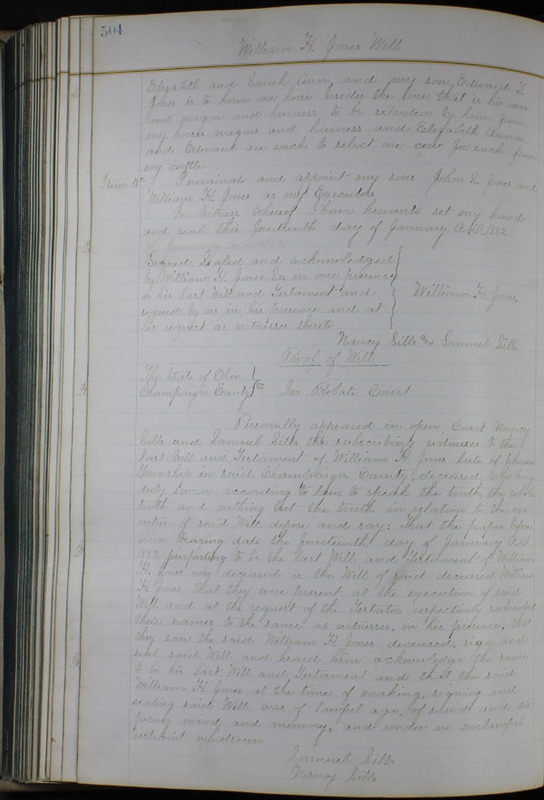 504
William H. Jones Will
Elizabeth and Sarah Ann, and my son Edward H.
Jones is to have one horse besides the one that is his own
and wagon and harness, to be selected by him from
my horses wagons and harness and Elizabeth Anna
and Edward are each to select one cow for each from
my cattle
Item 11th I nominate and appoint my sons John L. Jones and
William H. Jones as my Executors
In Witness whereof I have hereunto set my hand
and seal this fourteenth day of January A.D. 1882
Signed, Sealed and acknowledged
by William H. Jones Sr. in our presence
as his last Will and Testament and
signed by us in his presence and at
his request as witnesses thereto
William H. Jones
Nancy Sills and Samuel Sills
Proof of Will
The State of Ohio
Champaign County SS In Probate Court
Personally appeared in open Court Nancy
Sills and Samuel Sills the subscribing witnesses to the
last Will and Testament of William H. Jones late of Johnson
Township in said Champaign County, deceased, who
duly sworn according to law to speak the truth the whole
truth and nothing but the truth in relation to the exe-
cution of said Will depose and say: That the paper before
them bearing date the fourteenth day of January A.D.
1882 purporting to be the last Will and Testament of William
H. Jones now deceased is the Will of said deceased William
H. Jones that they were present at the execution of said
Will and at the request of the Testator respectively subscribed
their names to the same as witnesses, in his presence, that
they saw the said William H. Jones deceased, sign and
seal said Will, and heard him acknowledge the same
to be his last Will and Testament and that the said
William H. Jones at the time of making, signing and
sealing said Will, was of lawful age, of sound and dis-
posing mind and memory, and under no unlawful
restraint whatsoever
Samuel Sills
Nancy Sills